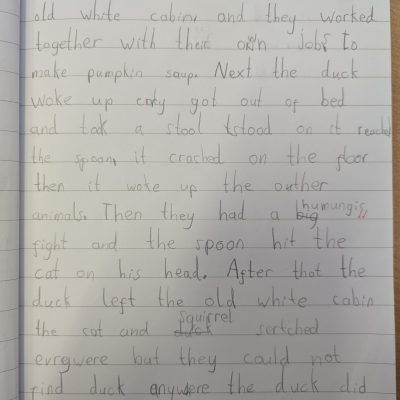 old white cabin, and they worked
together with their own jobs to
make pumpkin soup. Next the duck
woke up got out of bed
and took a stool stood on it reached
the spoon, it crashed on the floor
then it woke up the outher
animals. Then they had a big humungis
fight and the spoon hit the
cat on his head. After that the
duck left the old white cabin
the cat and duck squirrel sertched
evrywere but they could not
find duck anywere the duck did